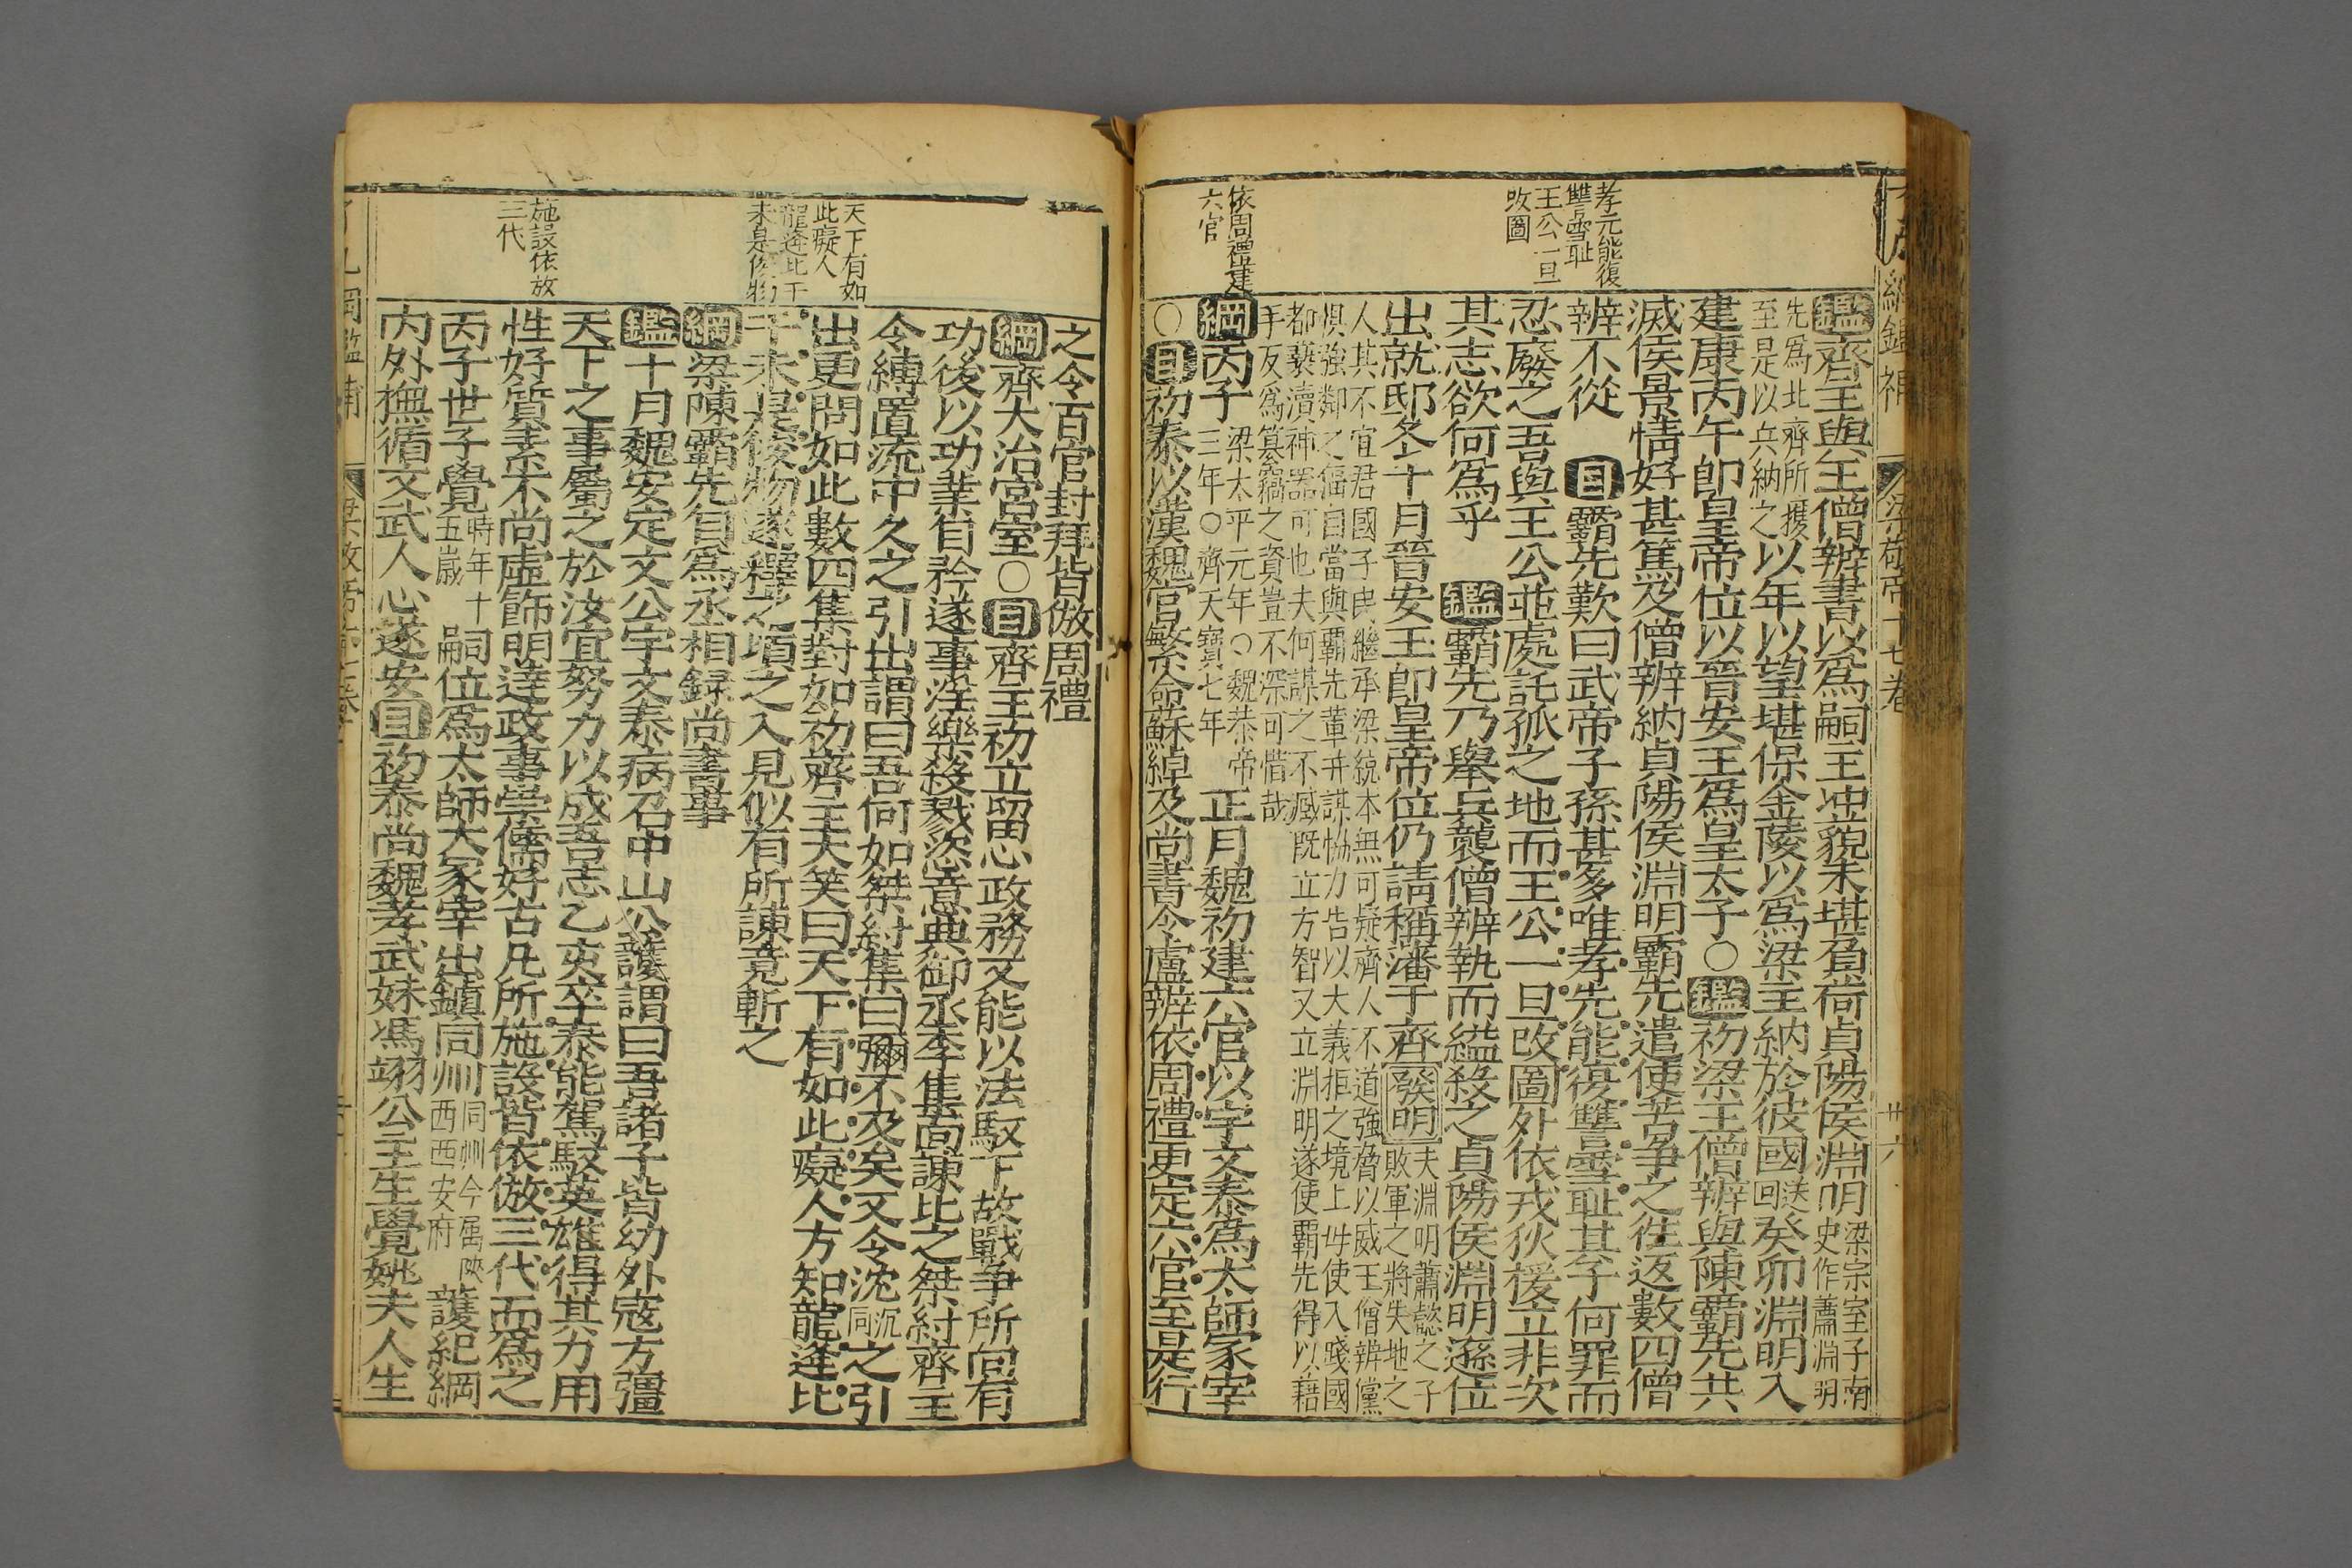 孝元能復
讐雪耻
王公一旦
改圖
依周禮建
六官
鑑齊主與王僧辯書以爲嗣主冲藐未堪負荷貞陽侯淵明梁宗室子南史作蕭淵明
先爲北齊所獲至是以兵納之以年以望堪保金陵以爲梁主納於彼國送回癸卯淵明入
建康丙午卽皇帝位以晉安王爲皇太子○鑑初梁王僧辯與陳霸先共
滅侯景情好甚篤及僧辨納貞陽侯淵明霸先遣使苦争之徃返數四僧
辨不從 目霸先歎曰武帝子孫甚多唯孝先能復讐雪耻其子何罪而
忍廢之吾與王公並處託孤之地而王公一旦改圖外依戎狄援立非次
其志欲何爲乎 鑑霸先乃舉兵襲僧辨執而縊殺之貞陽侯淵明遜位
出就邸冬十月晉安王卽皇帝位仍請稱藩于齊發明夫淵明蕭懿之子敗軍之將失地之
人其不宜君國子民繼承梁統本無可疑齊人不道強脅以威王僧辨黨
惧強鄰之偪自當與覇先軰并謀恊力告以大義拒之境上毋使入踐國
都褻瀆神器可也夫何謀之不臧既立方智又立淵明遂使覇先得以藉
手反爲簒竊之資豈不深可惜哉
綱丙子梁太平元年○魏恭帝三年○齊天寶七年正月魏初建六官以宇文泰爲太師冢宰
○目初泰以漢魏官繁命蘇綽及尚書令盧辨依周禮更定六官至是行
天下有如
此癡人
龍逄比干
未是俊物
施設依放
三代
之令百官封拜皆倣周禮
綱齊大治宫室○目齊主初立留思政務又能以法馭下故戰争所向有
功後以功業自矜遂事淫樂殺戮恣意典御丞李集面諫比之桀紂齊主
令縛置流中久之引出謂曰吾何如桀紂集曰彌不及矣又令沈沉同之引
出更問如此數四集對如初齊主大笑曰天下有如此癡人方知龍逄比
干未是俊物遂釋之頃之入見似有所諫竟斬之
綱梁陳霸先自爲丞相録尚書事
鑑十月魏安定文公宇文泰病召中山公護謂曰吾諸子皆幼外寇方彊
天下之事屬之於汝宜努力以成吾志乙亥卒泰能駕馭英雄得其力用
性好質素不尚虛飾明達政事崇儒好古凡所施設皆依倣三代而爲之
丙子世子覺時年十五嵗嗣位爲太師大冢宰出鎮同州同州今属陝西西安府護紀綱
内外撫循文武人心遂安目初泰尚魏孝武妹馮翊公主生覺姚夫人生